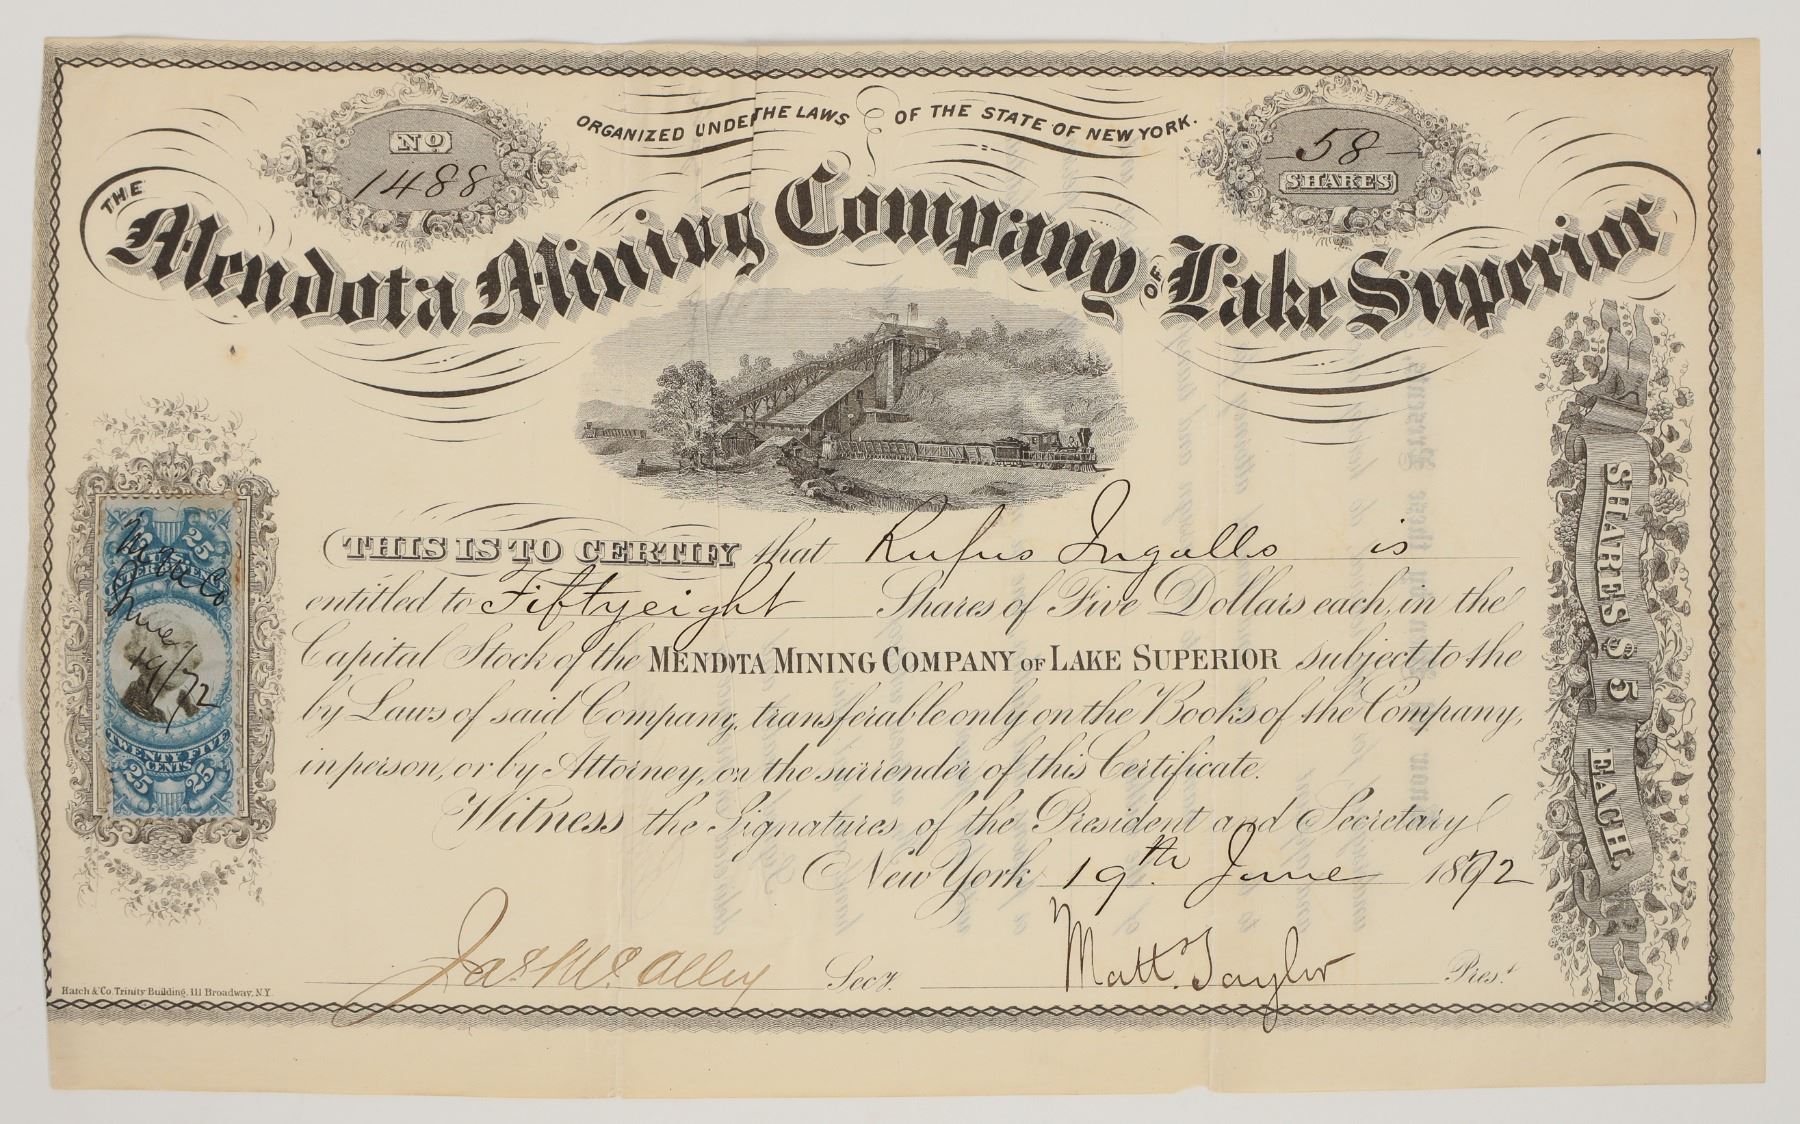 ORGANIZED UNDER THE LAWS OF THE STATE OF NEW YORK.
No
1488
58
SHARES
THE Mendota Mining Company OF Lake Superior
SHARES $5 EACH
THIS IS TO CERTIFY that Rufus Ingalls is
entitled to Fiftyeight Shares of Five Dollars each, in the
Capital Stock of the MENDOTA MINING COMPANY OF LAKE SUPERIOR subject to the
by Laws of said Company, transferable only on the Books of the Company,
in person, or by Attorney, on the surrender of this Certificate.
Witness the Signatures of the President and Secretary
New York 19th June 1872
Jas McAlley Secy. Matt. Taylor Prest
Hatch & Co. Trinity Building, 111 Broadway, N.Y.
25 25
June
19/72
TWENTY FIVE
CENTS
25 25